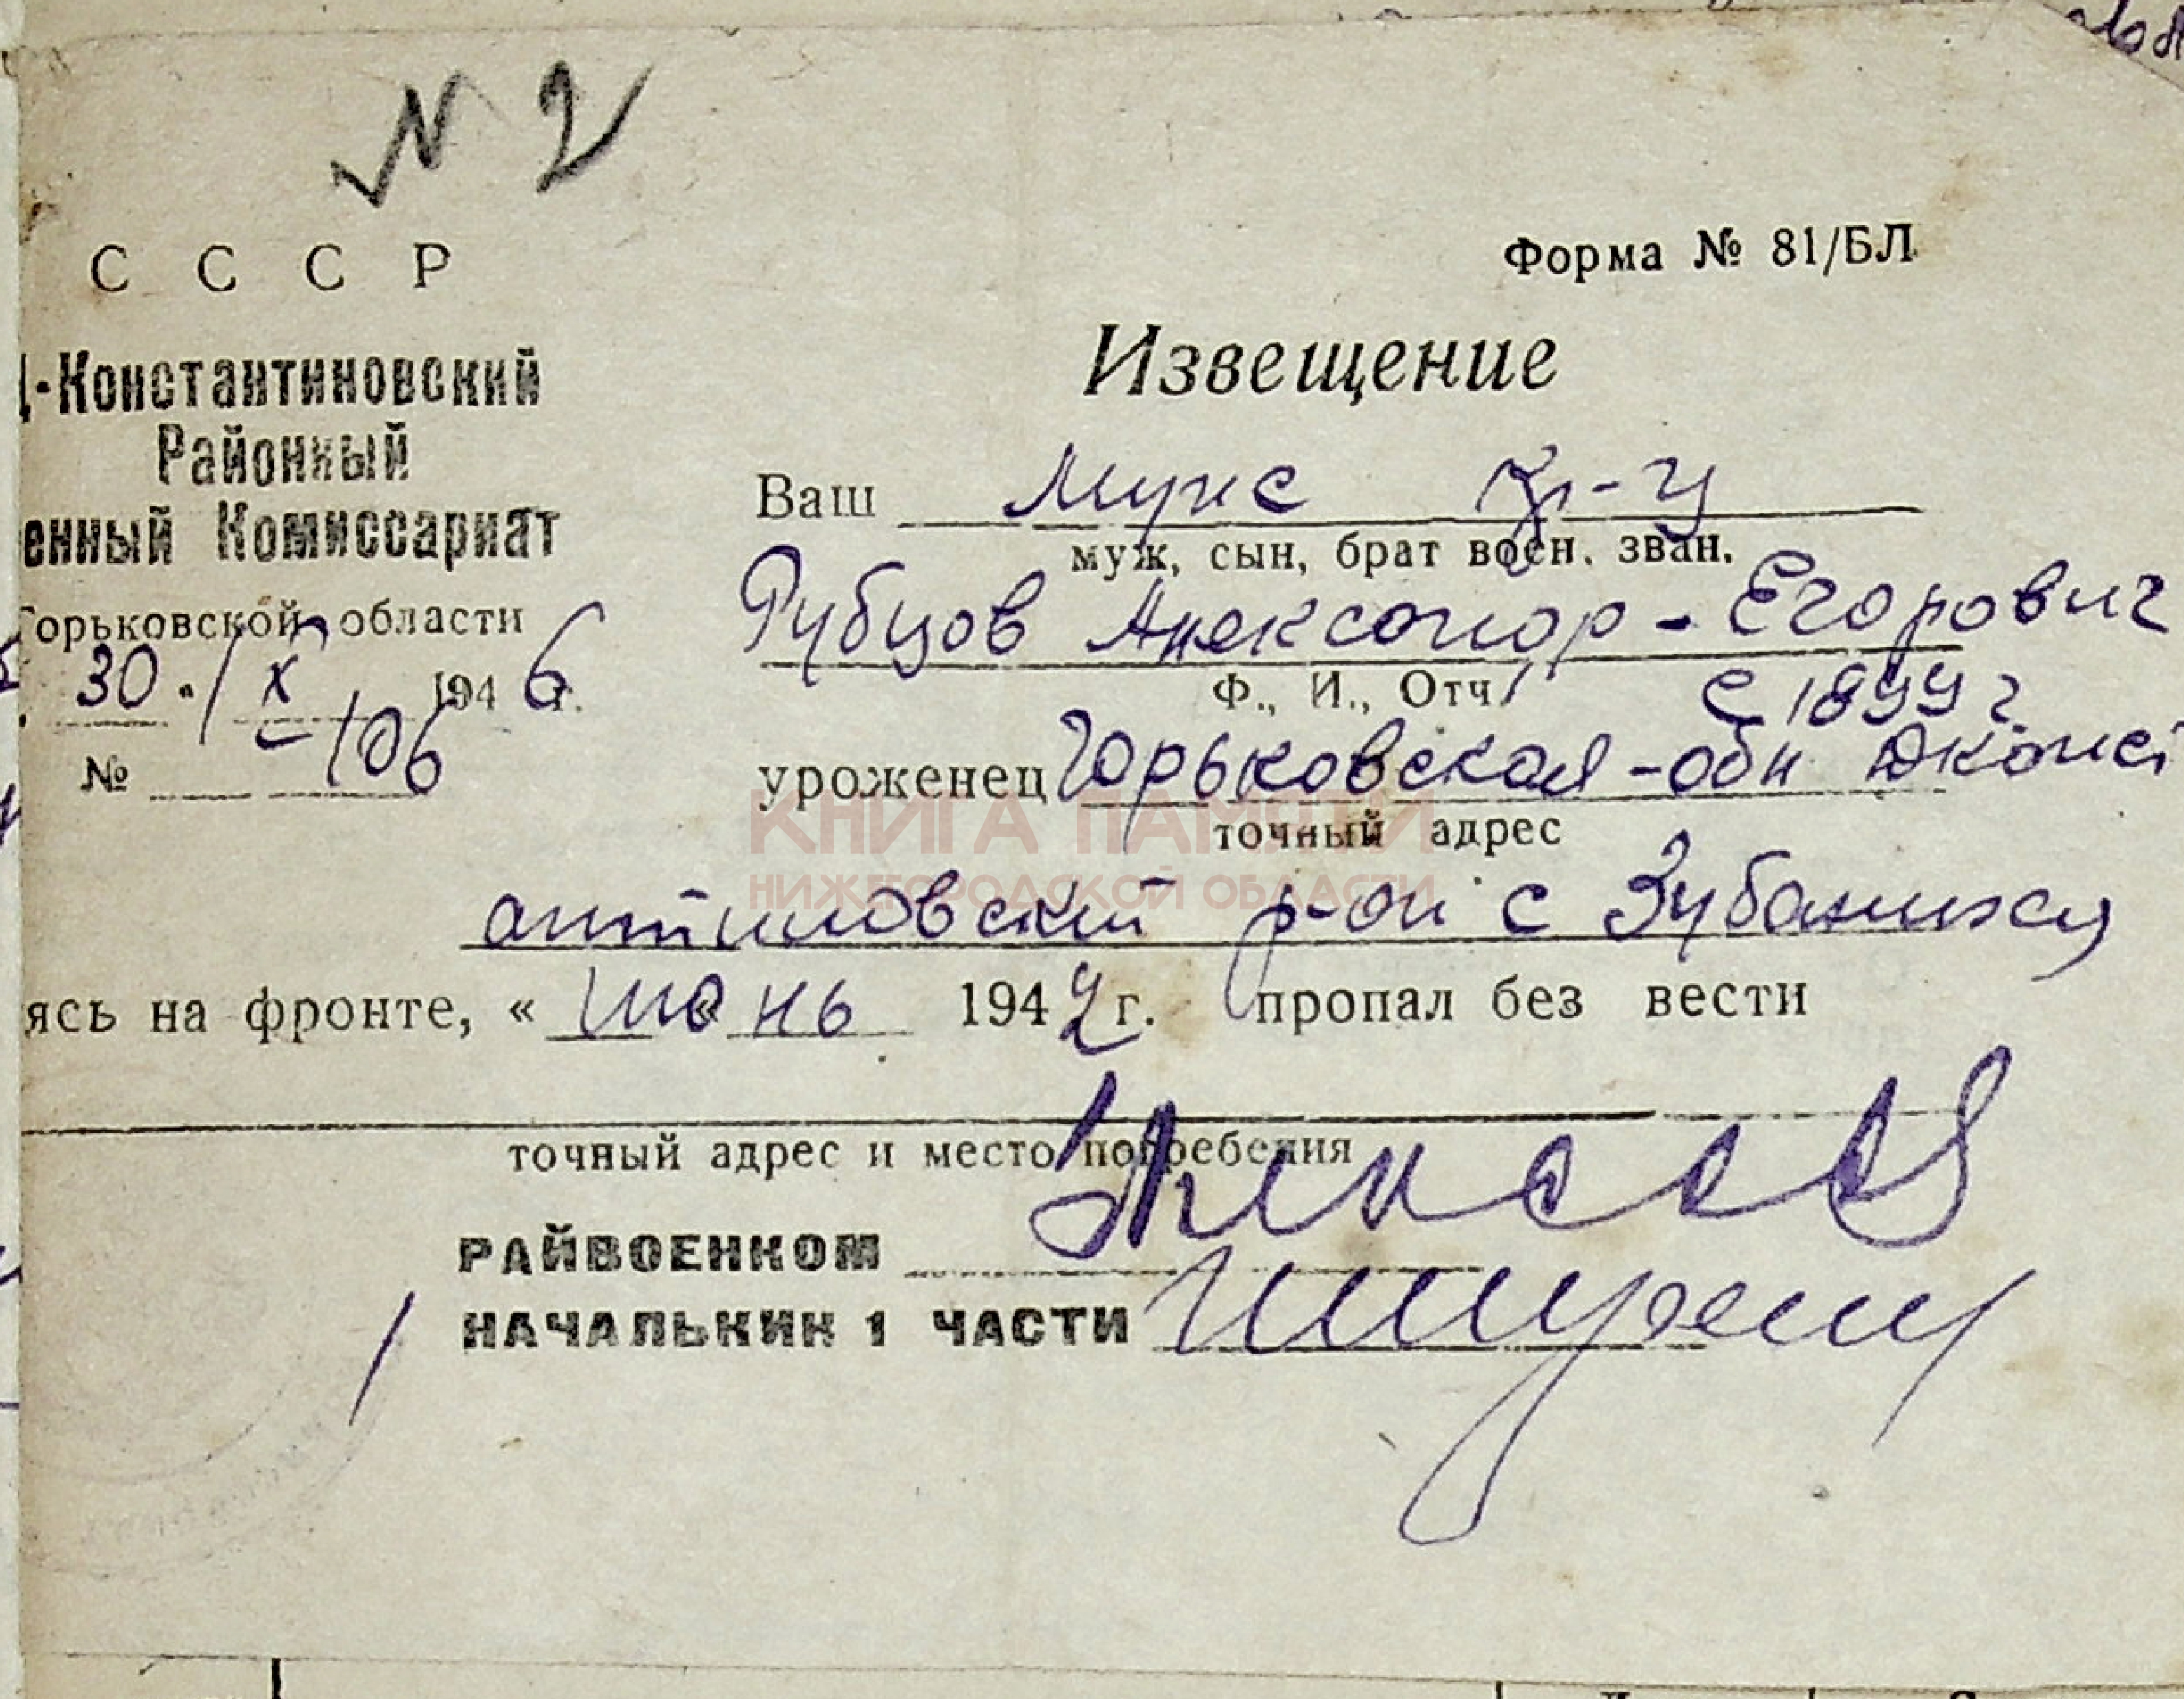 № 2
С С С Р
Форма № 81/БЛ
Д-Константиновский
Районный
енный Комиссариат
Горьковской области
30. IX 1946 г.
№ 106
Извещение
Ваш муж кр-ц
муж, сын, брат воен. зван.
Рубцов Александр-Егорович
Ф., И., Отч. с 1899 г
уроженец Горьковская-обл Дконст
точный адрес
антиновский р-он с
ясь на фронте, « июнь 1942 г. пропал без вести
точный адрес и место погребения
РАЙВОЕНКОМ
НАЧАЛЬНИК 1 ЧАСТИ
КНИГА ПАМЯТИ
НИЖЕГОРОДСКОЙ ОБЛАСТИ